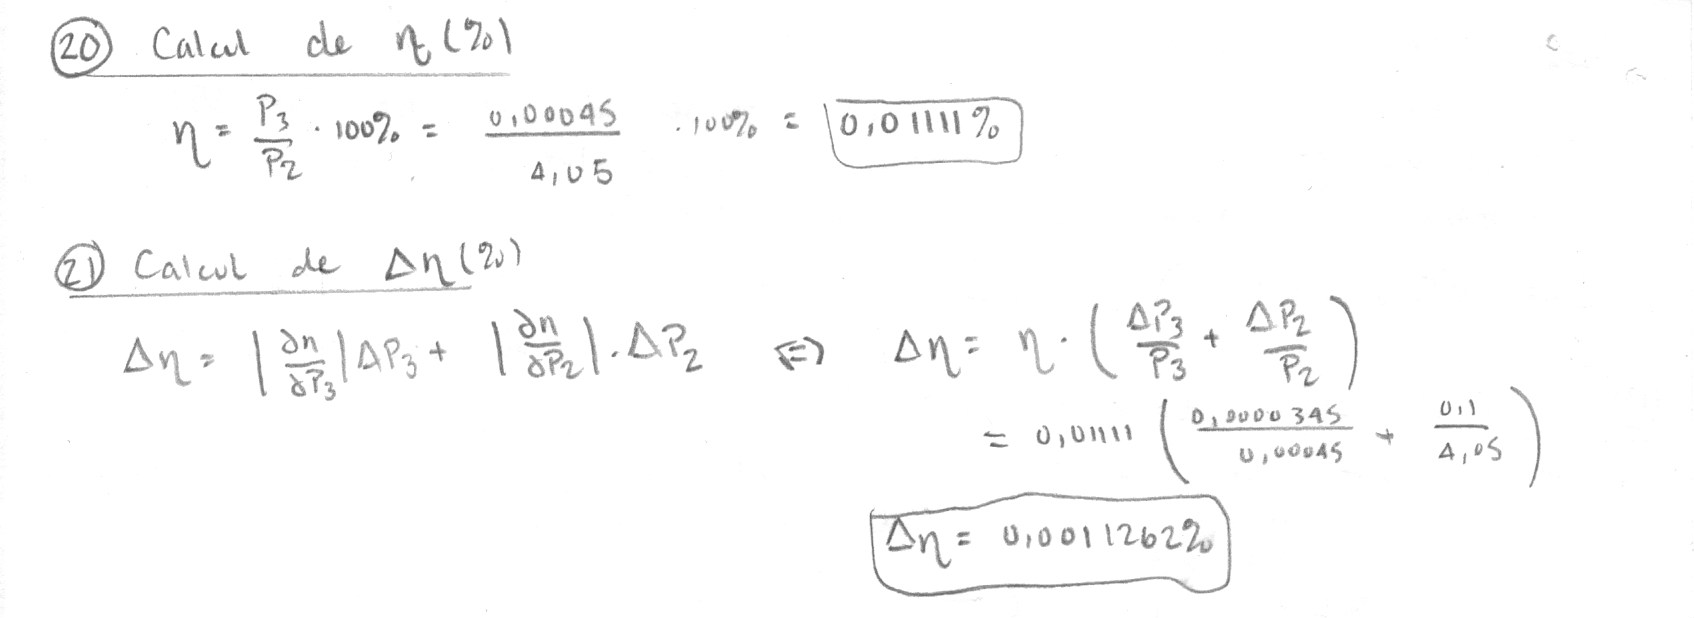 20 Calcul de η (%)
η = P3/P2 · 100% = 0,00045/4,05 · 100% = 0,01111%
21 Calcul de Δη (%)
Δη = |∂η/∂P3| ΔP3 + |∂η/∂P2| · ΔP2 ⇔ Δη = η · (ΔP3/P3 + ΔP2/P2)
= 0,01111 (0,0000345/0,00045 + 0,1/4,05)
Δη = 0,0011262%